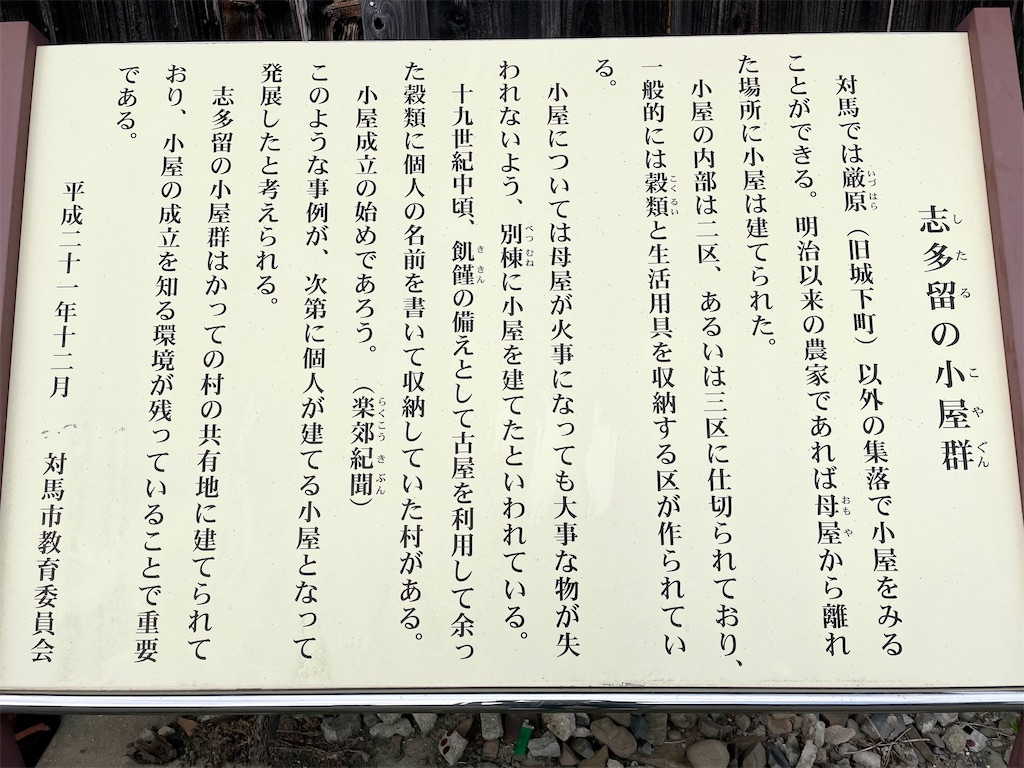 志多留の小屋群
対馬では厳原（旧城下町）以外の集落で小屋をみる
ことができる。明治以来の農家であれば母屋から離れ
た場所に小屋は建てられた。
小屋の内部は二区、あるいは三区に仕切られており、
一般的には穀類と生活用具を収納する区が作られてい
る。
小屋については母屋が火事になっても大事な物が失
われないよう、別棟に小屋を建てたといわれている。
十九世紀中頃、飢饉の備えとして古屋を利用して余っ
た穀類に個人の名前を書いて収納していた村がある。
小屋成立の始めであろう。（楽郊紀聞）
このような事例が、次第に個人が建てる小屋となって
発展したと考えられる。
志多留の小屋群はかつての村の共有地に建てられて
おり、小屋の成立を知る環境が残っていることで重要
である。
平成二十一年十二月 対馬市教育委員会